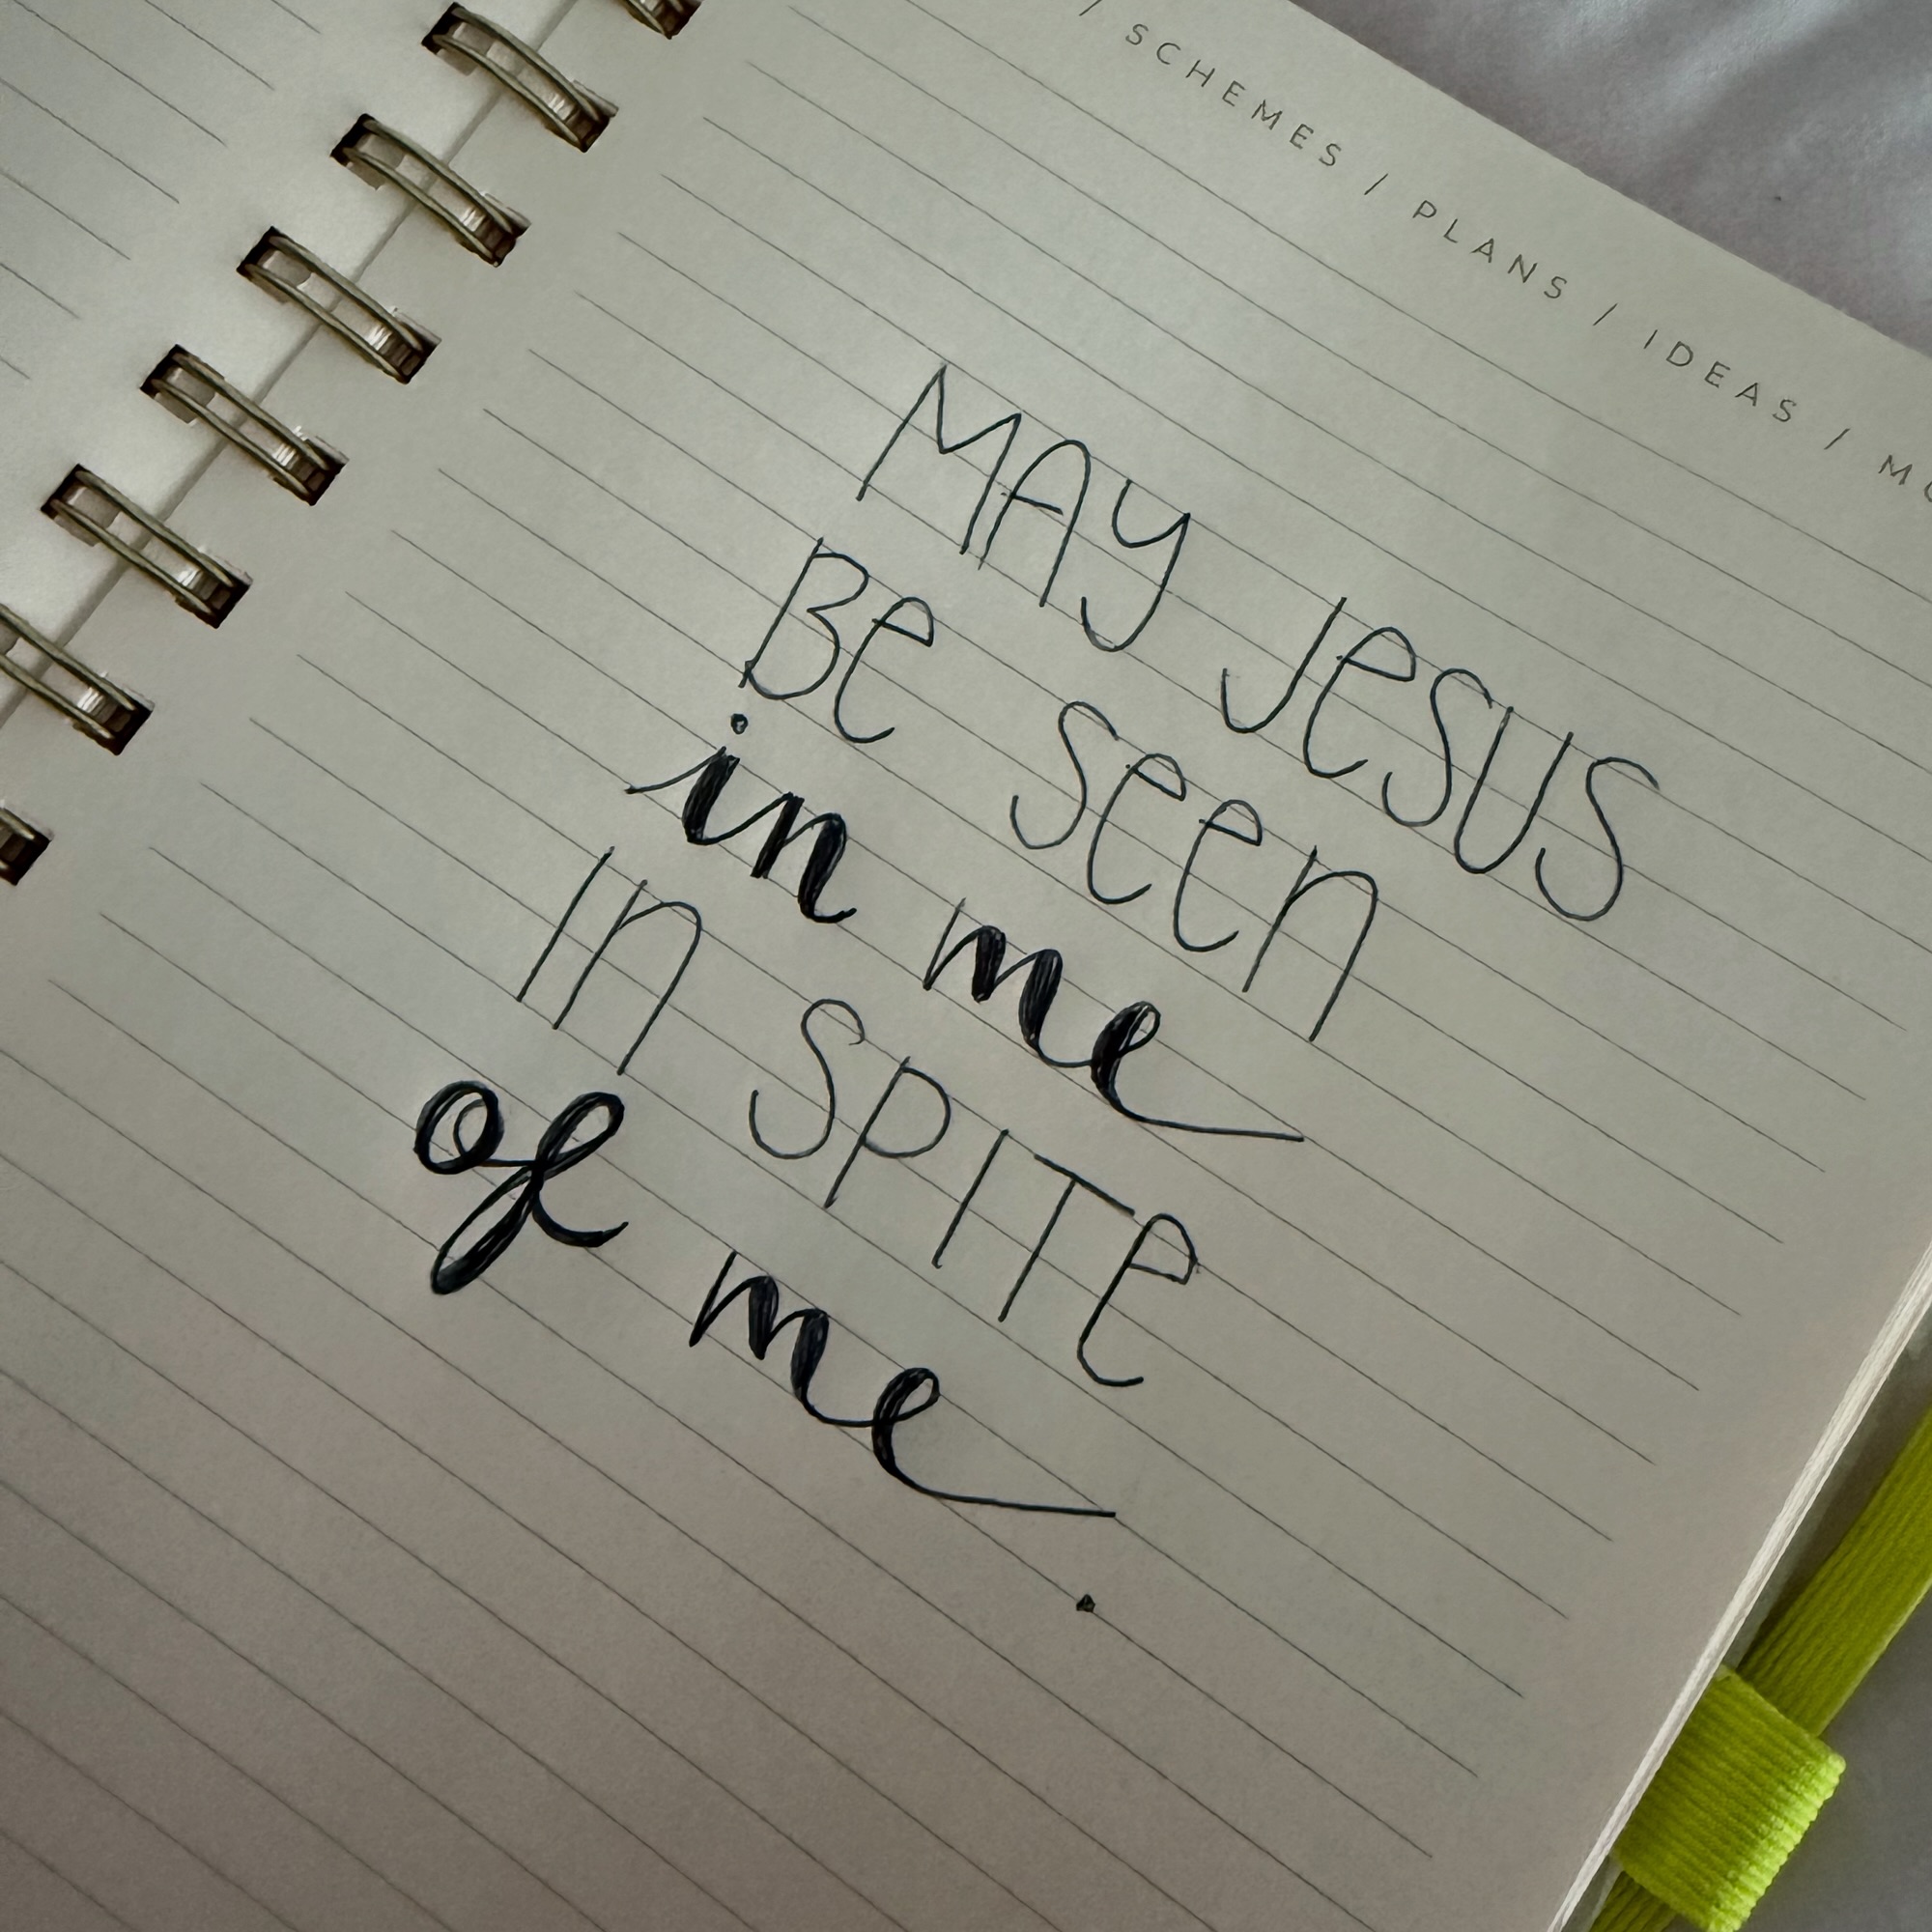 / SCHEMES / PLANS / IDEAS /
MAY JESUS
Be seen
in me
In SPITe
of me.